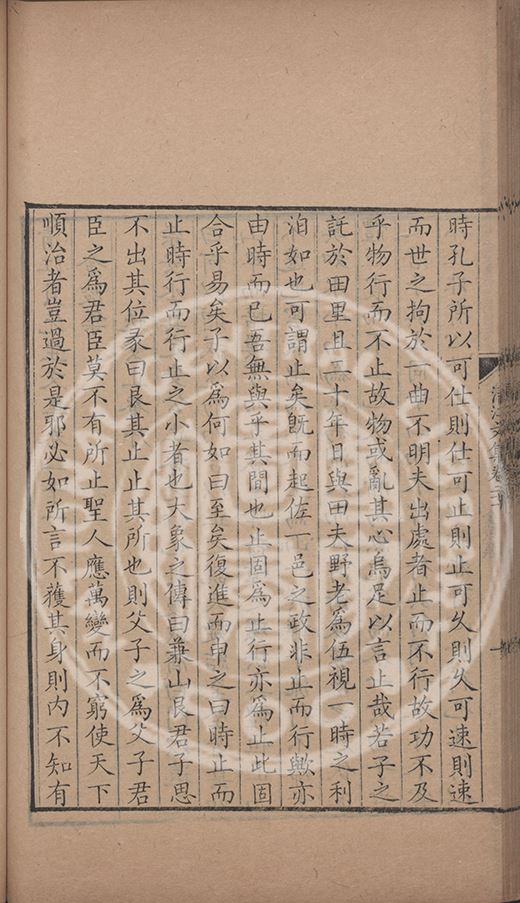 時孔子所以可仕則仕可止則止可久則久可速則速
而世之拘於一曲不明夫出處者止而不行故功不及
乎物行而不止故物或亂其心烏足以言止哉若子之
託於田里且二十年日與田夫野老爲伍視一時之利
泊如也可謂止矣旣而起佐一邑之政非止而行歟亦
由時而已吾無與乎其間也止固爲止行亦爲止此固
合乎易矣子以爲何如曰至矣復進而申之曰時止而
止時行而行止之小者也大象之傳曰兼山艮君子思
不出其位彖曰艮其止止其所也則父子之爲父子君
臣之爲君臣莫不有所止聖人應萬變而不窮使天下
順治者豈過於是耶必如所言不獲其身則内不知有